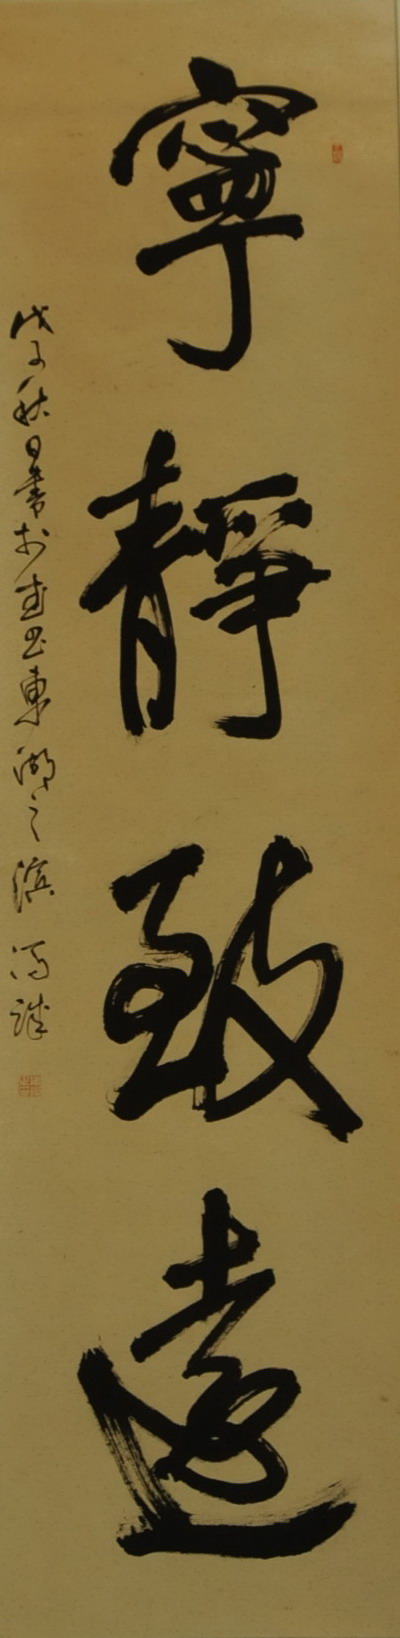 寧靜致遠
戊子秋日書於武昌東湖之濱 馮誠